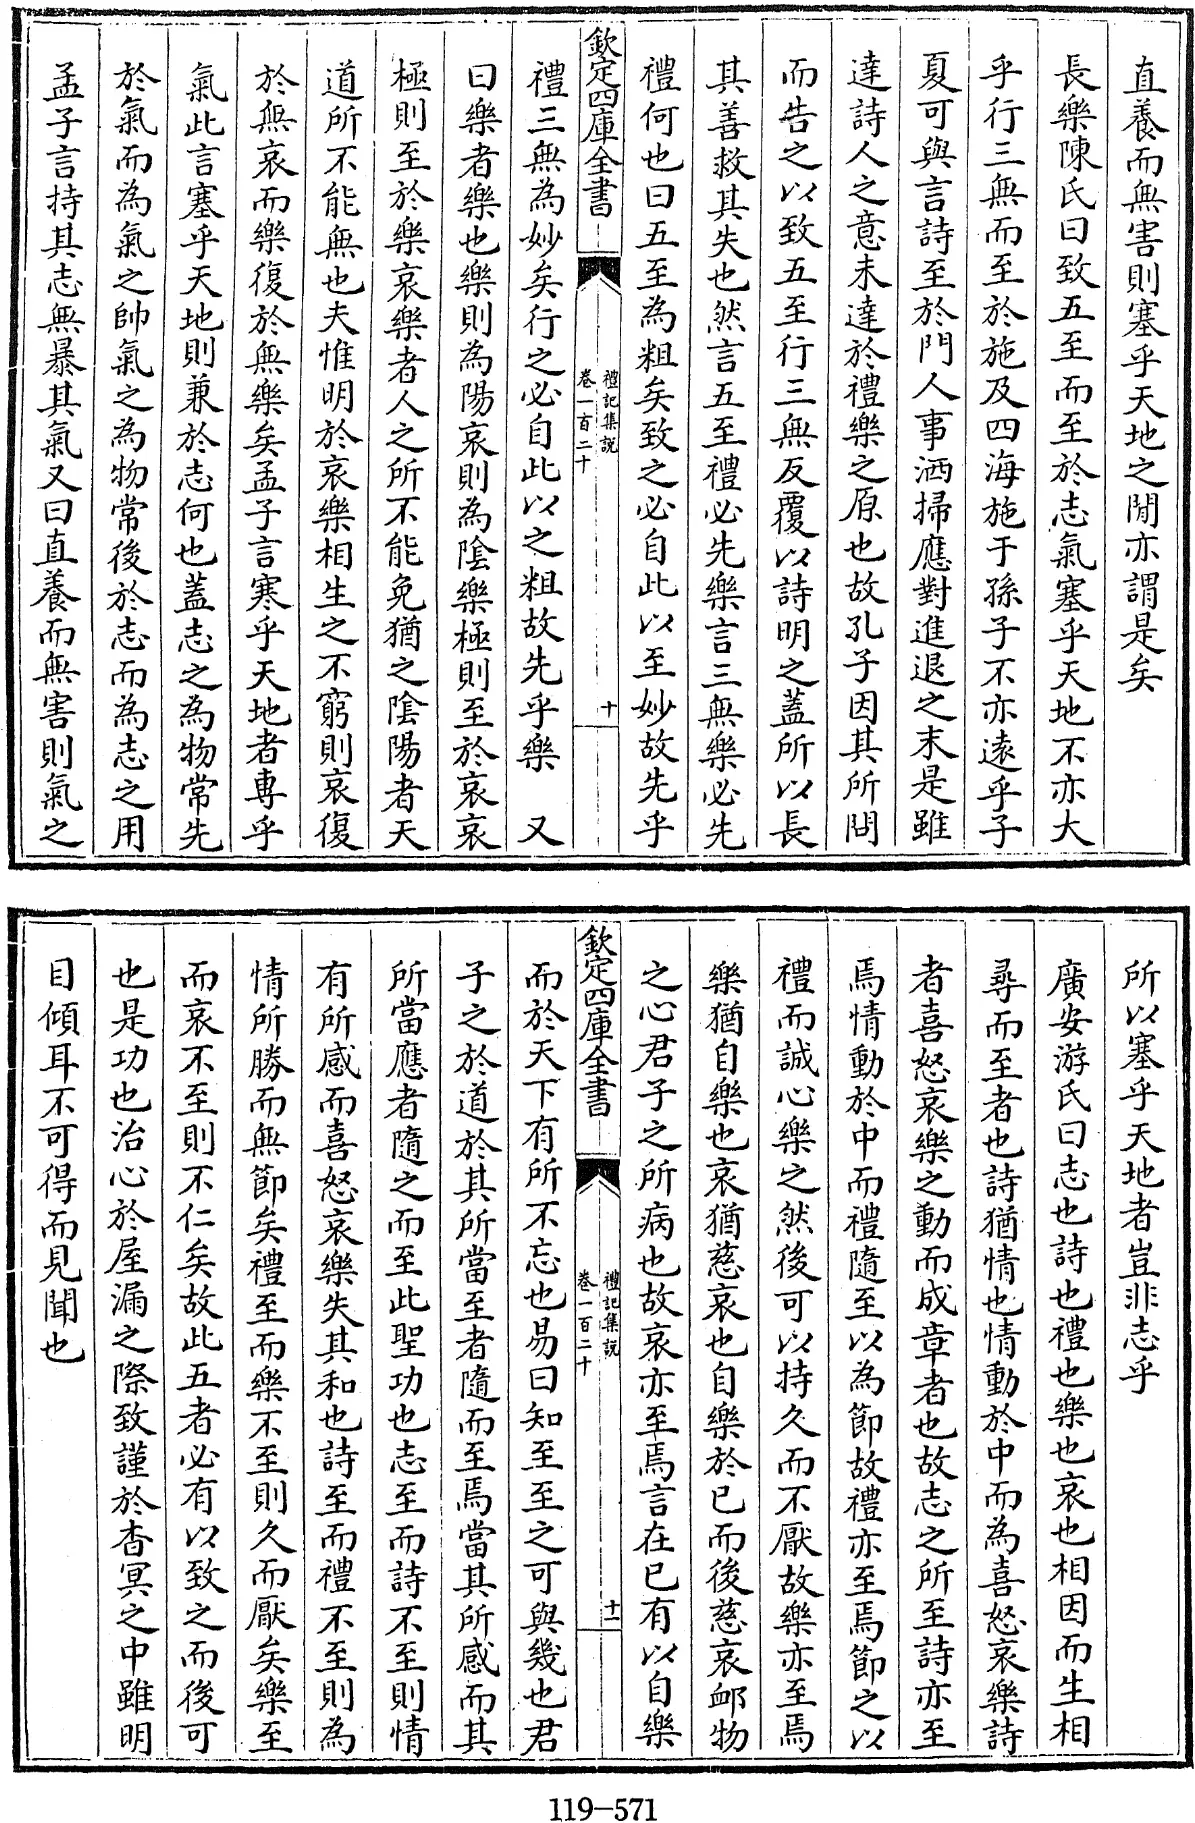 直養而無害則塞乎天地之閒亦謂是矣
長樂陳氏曰致五至而至於志氣塞乎天地不亦大
乎行三無而至於施及四海施于孫子不亦遠乎子
夏可與言詩至於門人事洒掃應對進退之末是雖
達詩人之意未達於禮樂之原也故孔子因其所問
而告之以致五至行三無反覆以詩明之蓋所以長
其善救其失也然言五至禮必先樂言三無樂必先
禮何也曰五至為粗矣致之必自此以至妙故先乎
欽定四庫全書
禮記集說
卷一百二十
十
禮三無為妙矣行之必自此以之粗故先乎樂 又
曰樂者樂也樂則為陽哀則為陰樂極則至於哀哀
極則至於樂哀樂者人之所不能免猶之陰陽者天
道所不能無也夫惟明於哀樂相生之不窮則哀復
於無哀而樂復於無樂矣孟子言寒乎天地者專乎
氣此言塞乎天地則兼於志何也蓋志之為物常先
於氣而為氣之帥氣之為物常後於志而為志之用
孟子言持其志無暴其氣又曰直養而無害則氣之
所以塞乎天地者豈非志乎
廣安游氏曰志也詩也禮也樂也哀也相因而生相
尋而至者也詩猶情也情動於中而為喜怒哀樂詩
者喜怒哀樂之動而成章者也故志之所至詩亦至
焉情動於中而禮隨至以為節故禮亦至焉節之以
禮而誠心樂之然後可以持久而不厭故樂亦至焉
樂猶自樂也哀猶慈哀也自樂於已而後慈哀卹物
之心君子之所病也故哀亦至焉言在已有以自樂
欽定四庫全書
禮記集說
卷一百二十
十一
而於天下有所不忘也易曰知至至之可與幾也君
子之於道於其所當至者隨而至焉當其所感而其
所當應者隨之而至此聖功也志至而詩不至則情
有所感而喜怒哀樂失其和也詩至而禮不至則為
情所勝而無節矣禮至而樂不至則久而厭矣樂至
而哀不至則不仁矣故此五者必有以致之而後可
也是功也治心於屋漏之際致謹於杳冥之中雖明
目傾耳不可得而見聞也
119-571